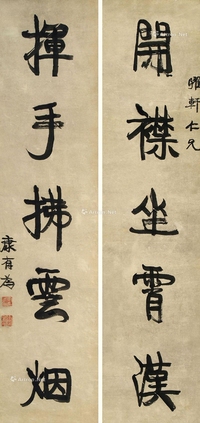 開襟坐霄漢
曜軒仁兄
揮手拂雲烟
康有為